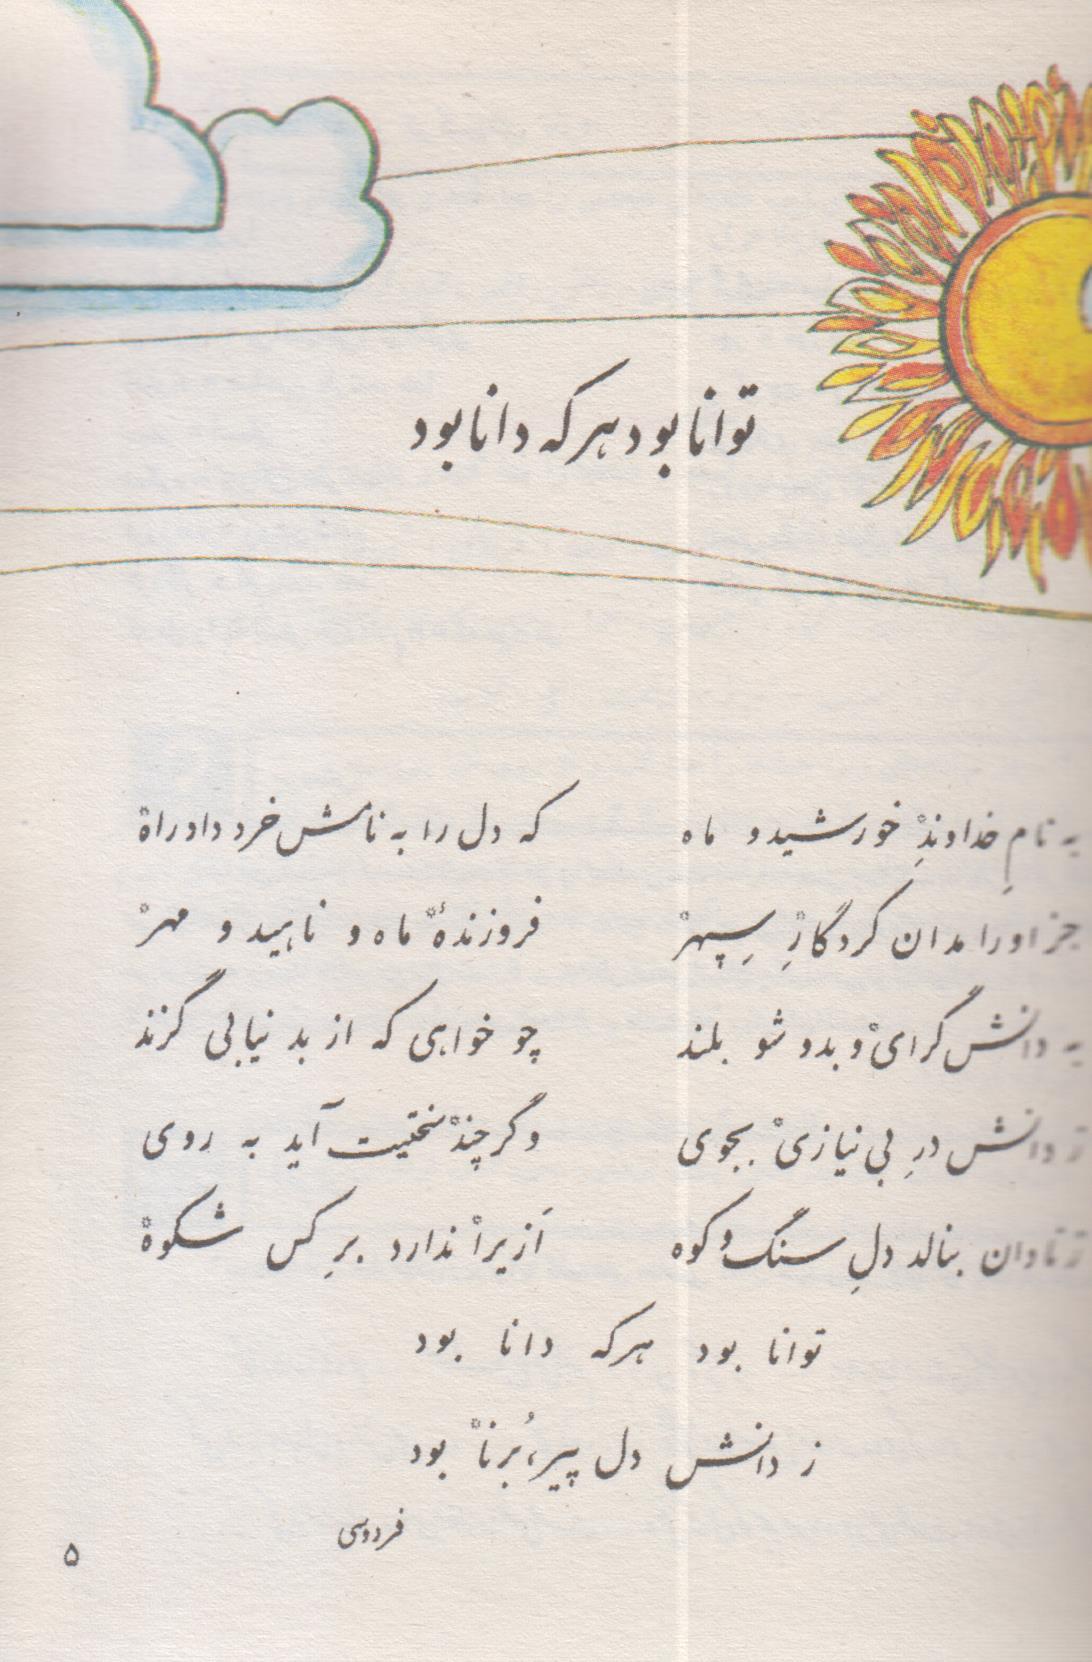 توانا بود هر که دانا بود
به نامِ خداوندِ خورشید و ماه که دل را به نامش خرد داد راه
جز او را مدان کردگارِ سپهر فروزندهٔ ماه و ناهید و مهر
به دانش گرای و بدو شو بلند چو خواهی که از بد نیابی گزند
ز دانش درِ بی نیازی بجوی وگر چند سختیت آید به روی
ز نادان بنالد دلِ سنگ و کوه اَزیرا ندارد برِ کس شکوه
توانا بود هر که دانا بود
ز دانش دل پیر، بُرنا بود
فردوسی
۵